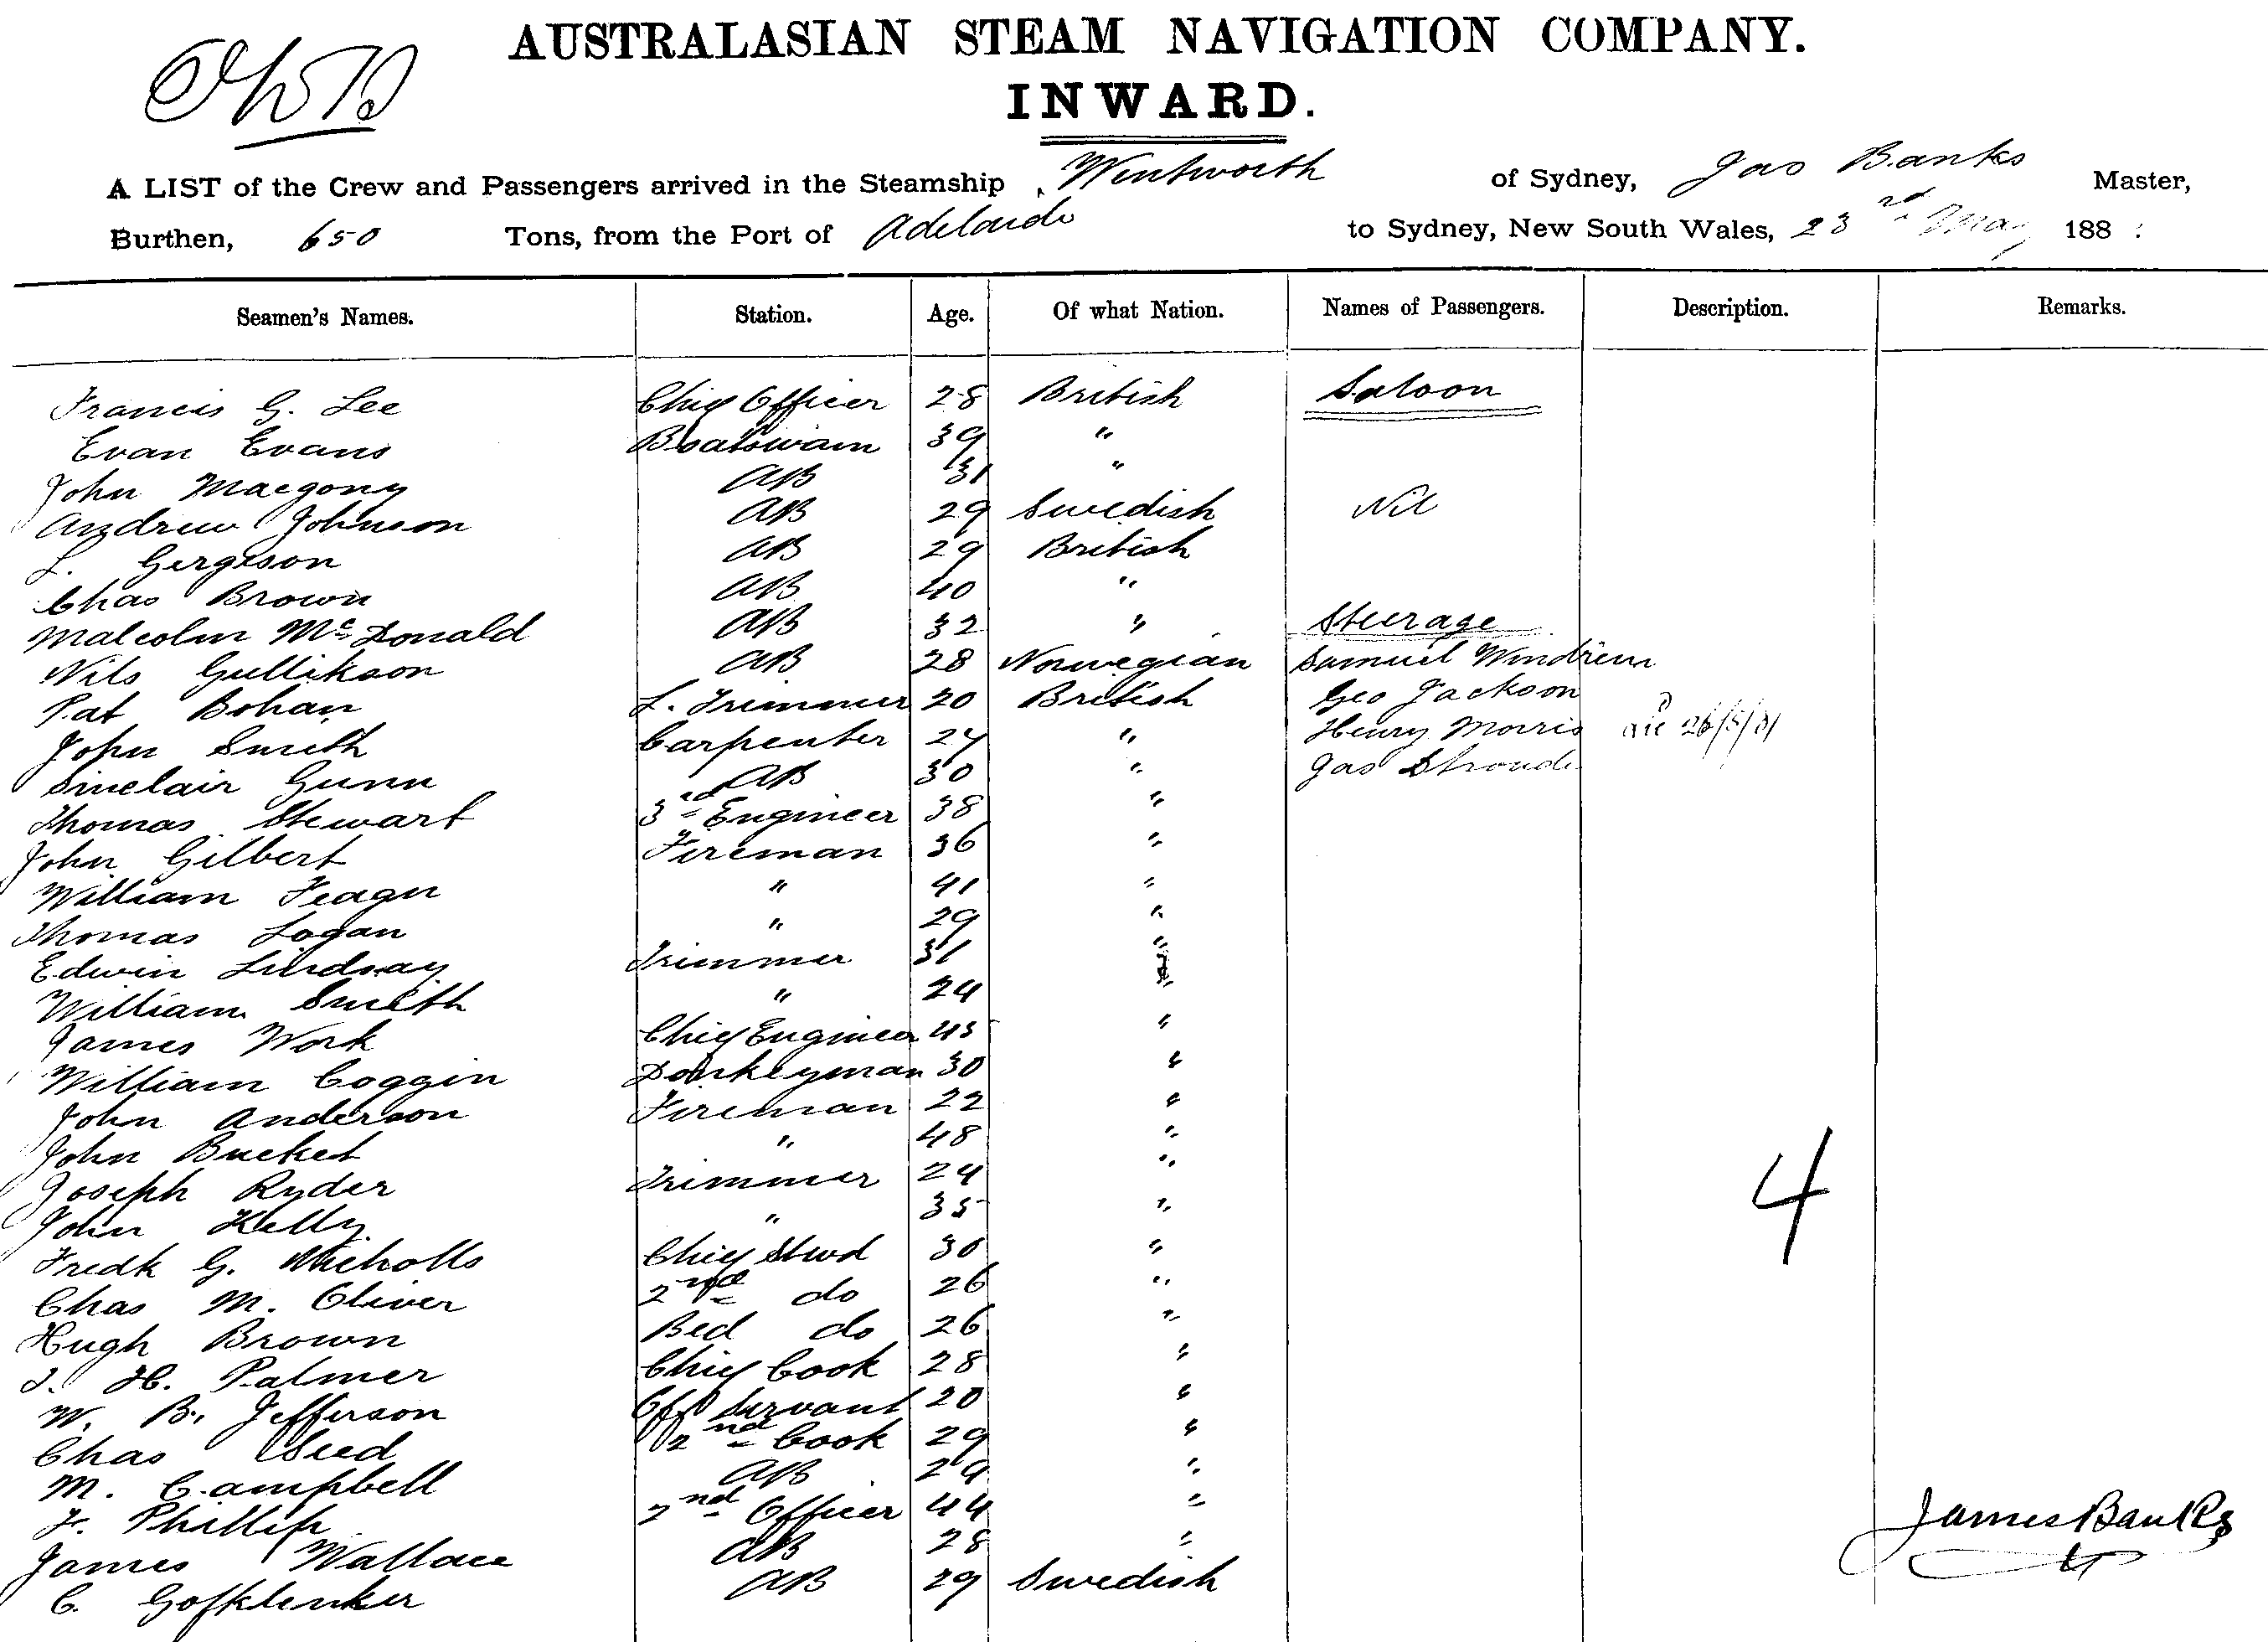 AUSTRALASIAN STEAM NAVIGATION COMPANY.
INWARD.
A LIST of the Crew and Passengers arrived in the Steamship Wentworth of Sydney, Jas Banks Master,
Burthen, 650 Tons, from the Port of Adelaide to Sydney, New South Wales, 23rd May 188
Seamen's Names. Station. Age. Of what Nation. Names of Passengers. Description. Remarks.
Francis G. Lee Chief Officer 28 British Saloon
Evan Evans Boatswain 39 "
John Macgony AB 31 "
Andrew Johnson AB 29 Swedish Nil
L. Gergeson AB 29 British
Chas Brown AB 40 "
Malcolm McDonald AB 32 " Steerage
Nils Gullikson AB 28 Norwegian Samuel
Pat Bohan L. Trimmer 20 British Geo Jackson
John Smith Carpenter 24 " Henry Morris 26/5/81
Sinclair Gunn AB 30 " Jas Stroude
Thomas Stewart 3rd Engineer 38 "
John Gilbert Fireman 36 "
William Feagu " 41 "
Thomas Logan " 29 "
Edwin Lindsay Trimmer 31 "
William Smith " 24 "
James Work Chief Engineer 45 "
William Coggin Donkeyman 30 "
John Anderson Fireman 22 "
John Bucket " 48 "
Joseph Ryder Trimmer 24 "
John Kelly " 35 "
Fredk G. Nicholls Chief Stwd 30 "
Chas M. Oliver 2nd do 26 "
Hugh Brown Bed do 26 "
J. H. Palmer Chief Cook 28 "
W. B. Jefferson Off Servant 20 "
Chas Seed 2nd Cook 29 "
M. Campbell AB 29 "
F. Phillip 2nd Officer 44 "
James Wallace AB 28 "
C. Gofklenker AB 29 Swedish
4
James Banks